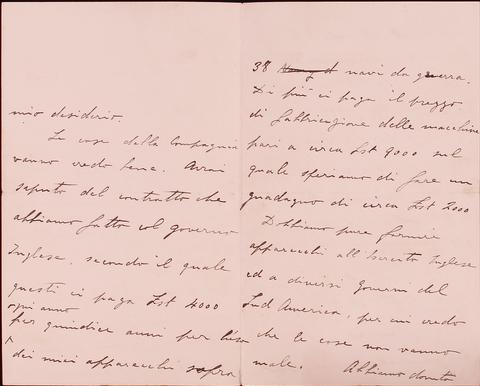 mio desiderio.
Le cose della Compagnia
vanno credo bene. Avrai
saputo del contratto che
abbiamo fatto col governo
Inglese, secondo il quale
questi ci paga Lst 4000
ogni anno
per quindici anni per l'uso
dei miei apparecchi sopra
38 navi da guerra.
Di più ci paga il prezzo
di fabbricazione delle macchine
pari a circa Lst 9000 sul
quale speriamo di fare un
guadagno di circa Lst 2000
Dobbiamo pure fornire
apparecchi all'Esercito Inglese
ed a diversi Governi del
Sud America, per cui credo
che le cose non vanno
male. Abbiamo dovuto